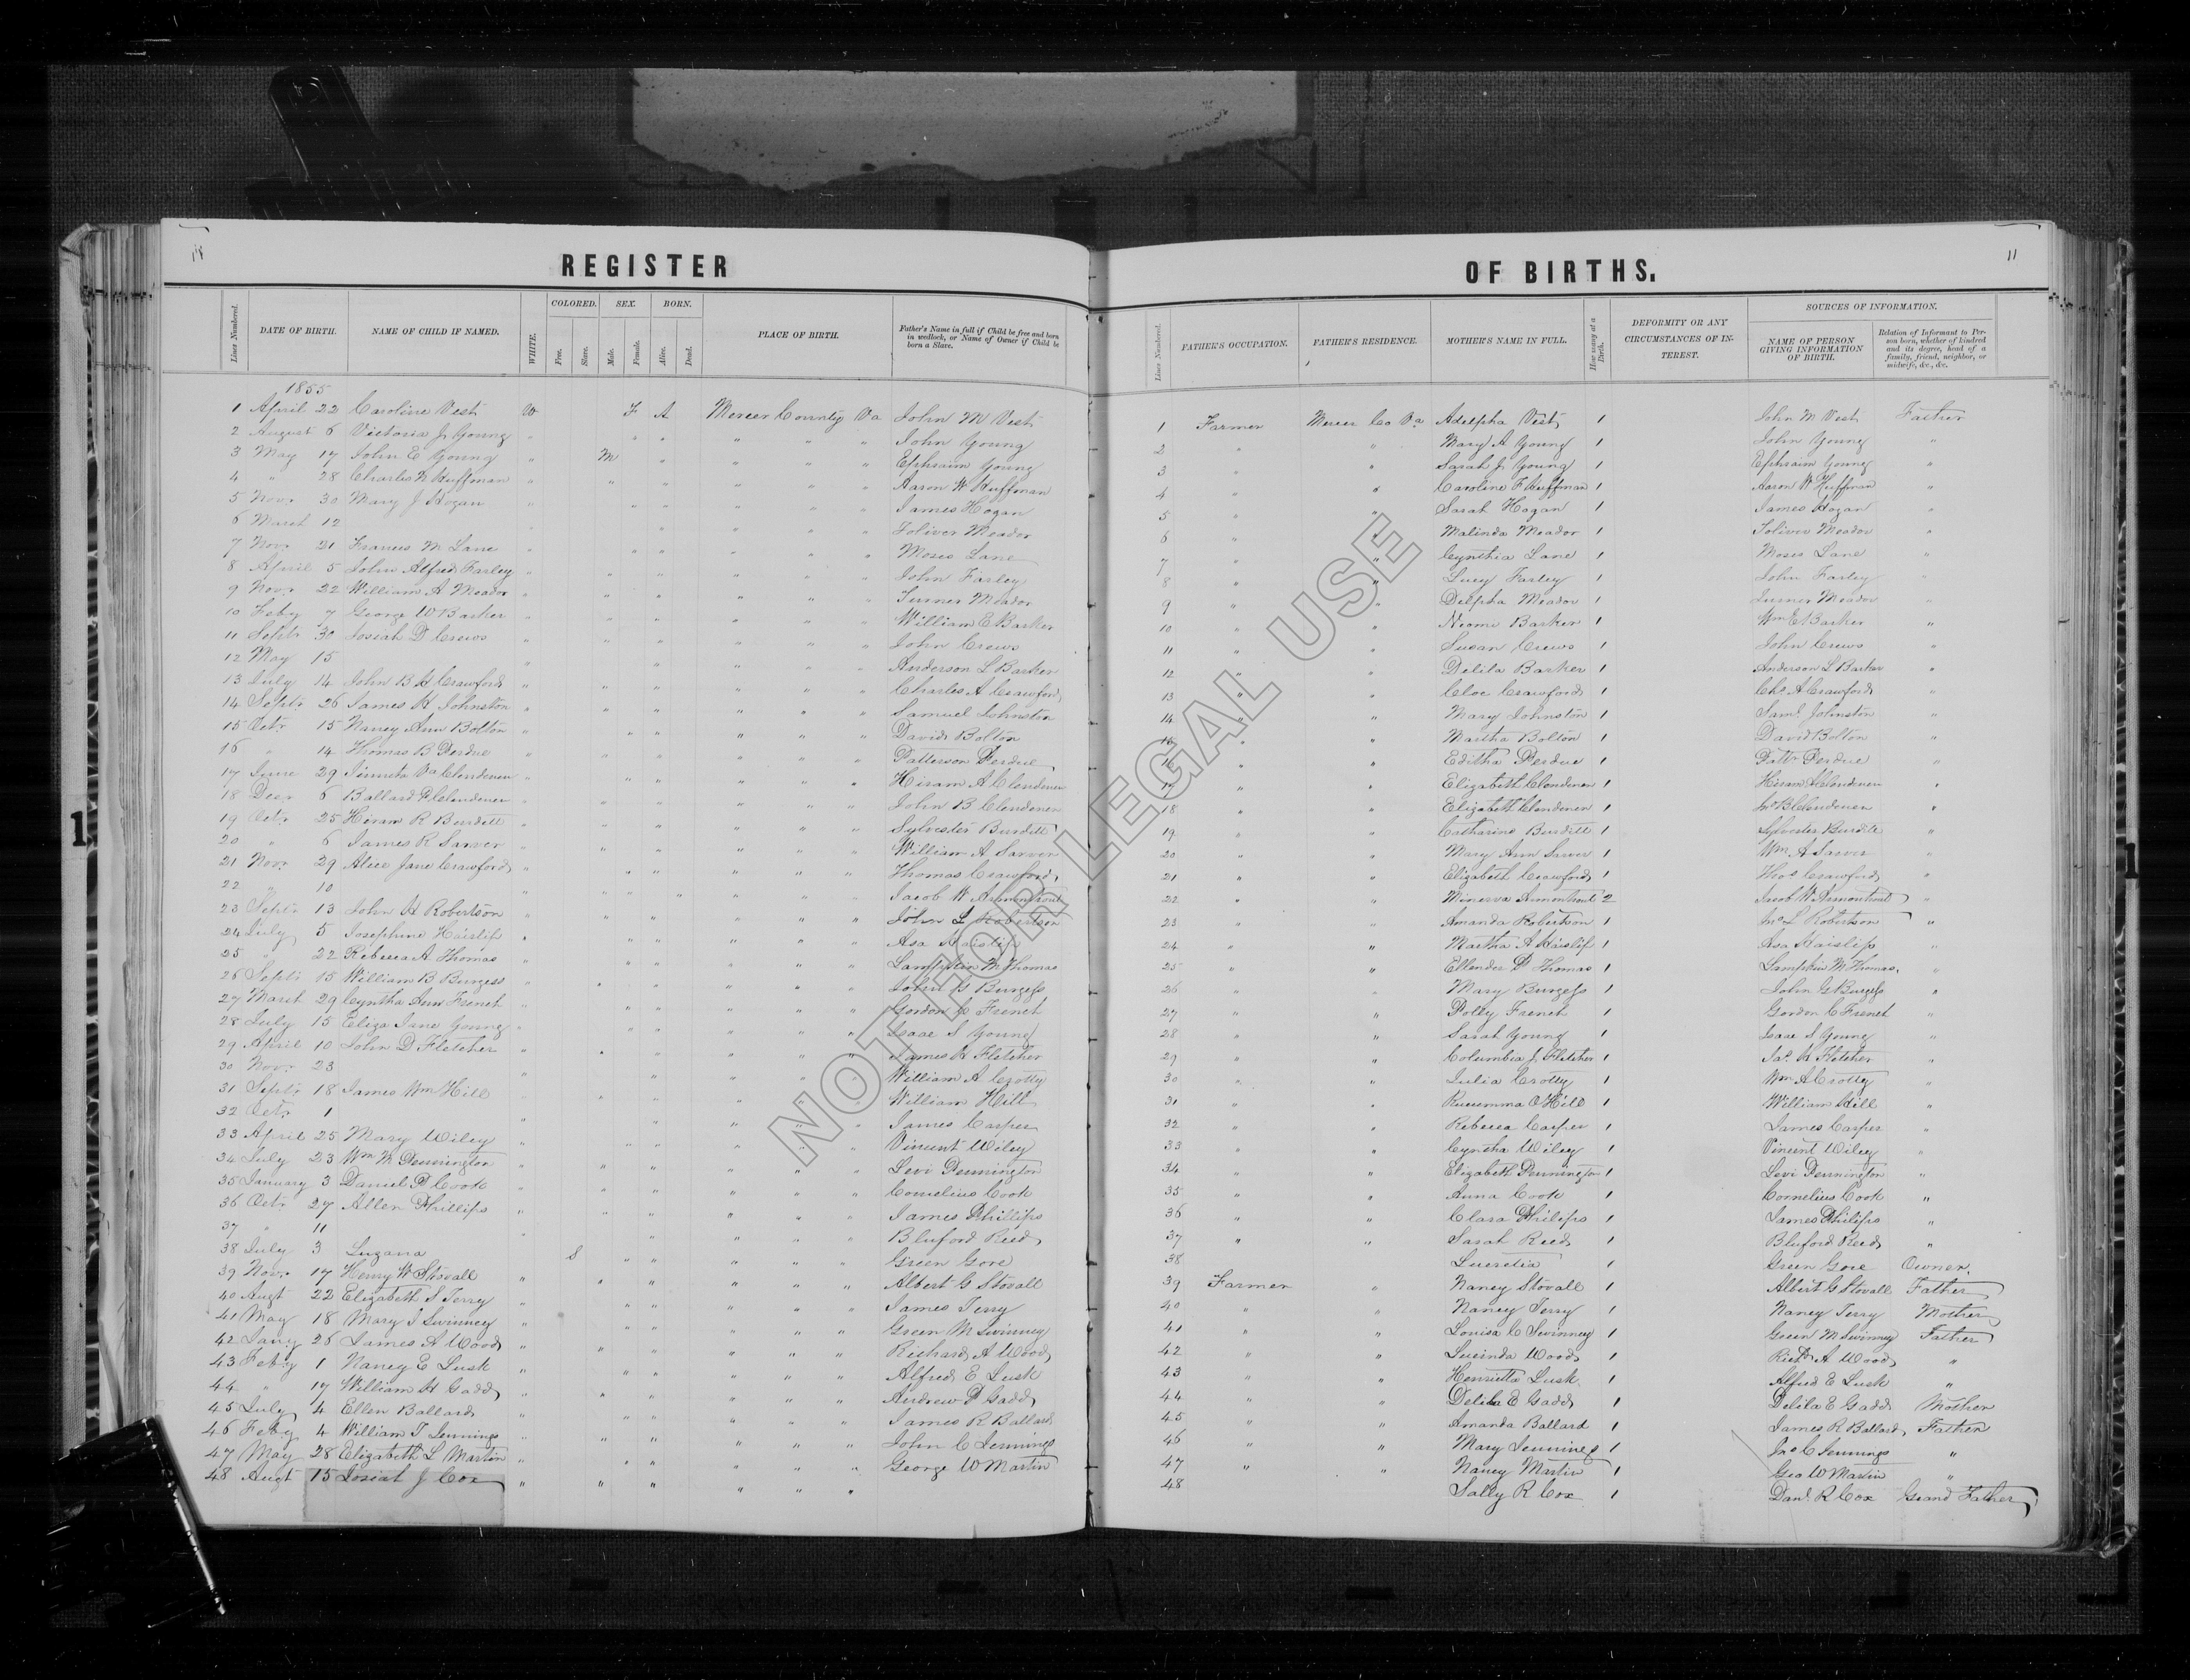 REGISTER
11
OF BIRTHS.
Lines Numbered. DATE OF BIRTH. NAME OF CHILD IF NAMED. WHITE. COLORED. Free. Slave. SEX. Male. Female. BORN. Alive. Dead. PLACE OF BIRTH. Father's Name in full if Child be free and born in wedlock, or Name of Owner if Child be born a Slave.
Lines Numbered. FATHER'S OCCUPATION. FATHER'S RESIDENCE. MOTHER'S NAME IN FULL. How many at a Birth. DEFORMITY OR ANY CIRCUMSTANCES OF INTEREST. SOURCES OF INFORMATION. NAME OF PERSON GIVING INFORMATION OF BIRTH. Relation of Informant to Person born, whether of kindred and its degree, head of a family, friend, neighbor, or midwife, &c., &c.
1855
1 April 22 Caroline Vest W F A Mercer County Va John M Vest
2 August 6 Victoria J Young " " " " " " John Young
3 May 17 John E Young " M " " " " Ephraim Young
4 " 28 Charles N Huffman " " " " " " Aaron W Huffman
5 Novr 30 Mary J Hogan " " " " " " James Hogan
6 March 12 " " " " " Toliver Meador
7 Novr 21 Frances M Lane " " " " " " Moses Lane
8 April 5 John Alfred Farley " " " " " " John Farley
9 Novr 22 William A Meador " " " " " " Turner Meador
10 Feby 7 George W Barker " " " " " " William E Barker
11 Septr 30 Josiah D Crews " " " " " " John Crews
12 May 15 " " " " " Anderson L Barker
13 July 14 John B H Crawford " " " " " " Charles A Crawford
14 Septr 26 James H Johnston " " " " " " Samuel Johnston
15 Octr 15 Nancy Ann Bolton " " " " " " David Bolton
16 " 14 Thomas B Perdue " " " " " " Patterson Perdue
17 June 29 Va Clendenen " " " " " " Hiram A Clendenen
18 Decr 6 Ballard P Clendenen " " " " " " John B Clendenen
19 Octr 25 Hiram R Burdett " " " " " " Sylvester Burdett
20 " 6 James R Sarver " " " " " " William A Sarver
21 Novr 29 Alice Jane Crawford " " " " " " Thomas Crawford
22 " 10 " " " " " " Jacob W Armentrout
23 Septr 13 John H Robertson " " " " " " John L Robertson
24 July 5 Josephine Haislip " " " " " " Asa Haislip
25 " 22 Rebecca A Thomas " " " " " " Lampkin M Thomas
26 Septr 15 William B Burgess " " " " " " John G Burgess
27 March 29 Cyntha Ann French " " " " " " Gordon C French
28 July 15 Eliza Jane Young " " " " " " Isaac S Young
29 April 10 John D Fletcher " " " " " " James H Fletcher
30 Novr 23 " " " " " William A Crotty
31 Septr 18 James Wm Hill " " " " " " William Hill
32 Octr 1 " " " " " James Casper
33 April 25 Mary Wiley " " " " " " Vincent Wiley
34 July 23 Wm M Pennington " " " " " " Levi Pennington
35 January 3 Daniel P Cook " " " " " " Cornelius Cook
36 Octr 27 Allen Phillips " " " " " " James Phillips
37 " 11 " " " " " Bluford Reed
38 July 3 Luzana S " " " " " Green Gore
39 Novr 17 Henry W Stovall " " " " " " Albert G Stovall
40 Augt 22 Elizabeth S Terry " " " " " " James Terry
41 May 18 Mary J Swinney " " " " " " Green M Swinney
42 Jany 26 James A Wood " " " " " " Richard A Wood
43 Feby 1 Nancy E Lusk " " " " " " Alfred E Lusk
44 " 17 William H Gadd " " " " " " Andrew P Gadd
45 July 4 Ellen Ballard " " " " " " James R Ballard
46 Feby 4 William T Jennings " " " " " " John C Jennings
47 May 28 Elizabeth L Martin " " " " " " George W Martin
48 Augt 15 Josiah J Cox " " " " " "
1 Farmer Mercer Co Va Adelpha Vest 1 John M Vest Father
2 " " Mary A Young 1 John Young "
3 " " Sarah J Young 1 Ephraim Young "
4 " " Caroline F Huffman 1 Aaron W Huffman "
5 " " Sarah Hogan 1 James Hogan "
6 " " Malinda Meador 1 Toliver Meador "
7 " " Cynthia Lane 1 Moses Lane "
8 " " Lucy Farley 1 John Farley "
9 " " Delpha Meador 1 Turner Meador "
10 " " Neomi Barker 1 Wm E Barker "
11 " " Susan Crews 1 John Crews "
12 " " Delila Barker 1 Anderson L Barker "
13 " " Cloe Crawford 1 Chs A Crawford "
14 " " Mary Johnston 1 Saml Johnston "
15 " " Martha Bolton 1 David Bolton "
16 " " Editha Perdue 1 Pattn Perdue "
17 " " Elizabeth Clendenen 1 Hiram A Clendenen "
18 " " Elizabeth Clendenen 1 Jno B Clendenen "
19 " " Catharine Burdett 1 Sylvester Burdett "
20 " " Mary Ann Sarver 1 Wm A Sarver "
21 " " Elizabeth Crawford 1 Thos Crawford "
22 " " Minerva Armontrout 2 Jacob W Armontrout "
23 " " Amanda Robertson 1 Jno L Robertson "
24 " " Martha A Haislip 1 Asa Haislip "
25 " " Ellender P Thomas 1 Lampkin M Thomas "
26 " " Mary Burgess 1 John G Burgess "
27 " " Polly French 1 Gordon C French "
28 " " Sarah Young 1 Isaac S Young "
29 " " Columbia J Fletcher 1 Jas H Fletcher "
30 " " Julia Crotty 1 Wm A Crotty "
31 " " O Hill 1 William Hill "
32 " " Rebecca Casper 1 James Casper "
33 " " Cyntha Wiley 1 Vincent Wiley "
34 " " Elizabeth Pennington 1 Levi Pennington "
35 " " Anna Cook 1 Cornelius Cook "
36 " " Clara Philips 1 James Philips "
37 " " Sarah Reed 1 Bluford Reed "
38 Lucretia 1 Green Gore Owner.
39 Farmer " Nancy Stovall 1 Albert G Stovall Father
40 " " Nancy Terry 1 Nancy Terry Mother
41 " " Louisa C Swinney 1 Green M Swinney Father
42 " " Lucinda Wood 1 Richd A Wood "
43 " " Henrietta Lusk 1 Alfred E Lusk "
44 " " Delila E Gadd 1 Delila E Gadd Mother
45 " " Amanda Ballard 1 James R Ballard Father
46 " " Mary Jennings 1 Jno C Jennings "
47 " " Nancy Martin 1 Geo W Martin "
48 Sally R Cox 1 Danl R Cox Grand Father
NOT FOR LEGAL USE